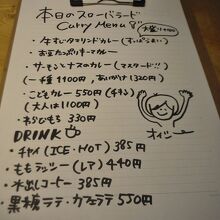 本日のスローバラード
Curry Menu
・牛すじタマリンドカレー(すっぱうまい)
・お豆たっぷりキーマカレー
・サーモンとナスのカレー(マスタード!!)
(一種 1100円、あいがけ 1320円)
・こどもカレー 550円(チキン)
(大人は1100円)
・わらびもち 330円
DRINK
・チャイ(ICE・HOT) 385円
・ももラッシー(レア) 440円
・水出しコーヒー 385円
・黒糖ラテ・カフェラテ 550円
オイシー